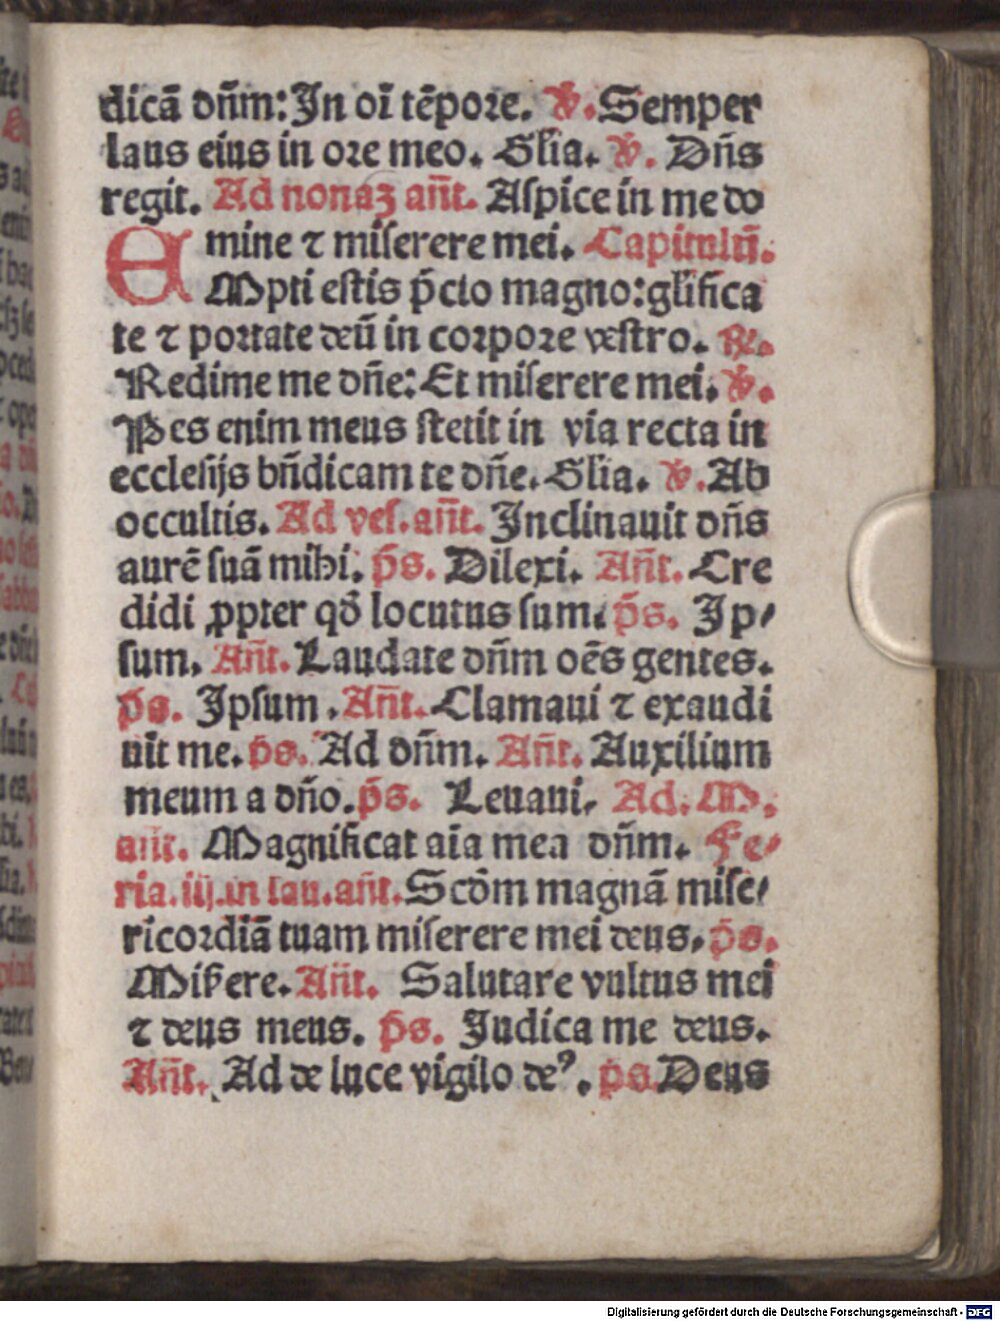 dicā dn̄m: In oī tēpore. ℣. Semper
laus eius in ore meo. Gl̄ia. ℣. Dn̄s
regit. Ad nonaꝫ an̄t. Aſpice in me do
mine ⁊ miſerere mei. Capitulū.
EMpti eſtis p̄cio magno: gl̄ifica
te ⁊ portate deū in corpore veſtro. ℟.
Redime me dn̄e: Et miſerere mei. ℣.
Pes enim meus ſtetit in via recta in
eccleſijs bn̄dicam te dn̄e. Gl̄ia. ℣. Ab
occultis. Ad veſ. an̄t. Inclinauit dn̄s
aurē ſuā mihi. p̄s. Dilexi. An̄t. Cre
didi ꝓpter qd̄ locutus ſum. p̄s. Ip⸗
ſum. An̄t. Laudate dn̄m oēs gentes.
p̄s. Ipſum. An̄t. Clamaui ⁊ exaudi
uit me. p̄s. Ad dn̄m. An̄t. Auxilium
meum a dn̄o. p̄s. Leuaui. Ad. M.
an̄t. Magnificat aīa mea dn̄m. Fe⸗
ria. iij. in lau. an̄t. Scd̄m magnā miſe⸗
ricordiā tuam miſerere mei deus. p̄s.
Miẜere. An̄t. Salutare vultus mei
⁊ deus meus. p̄s. Iudica me deus.
An̄t. Ad de luce vigilo deꝰ. p̄s. Deus
Digitalisierung gefördert durch die Deutsche Forschungsgemeinschaft - DFG